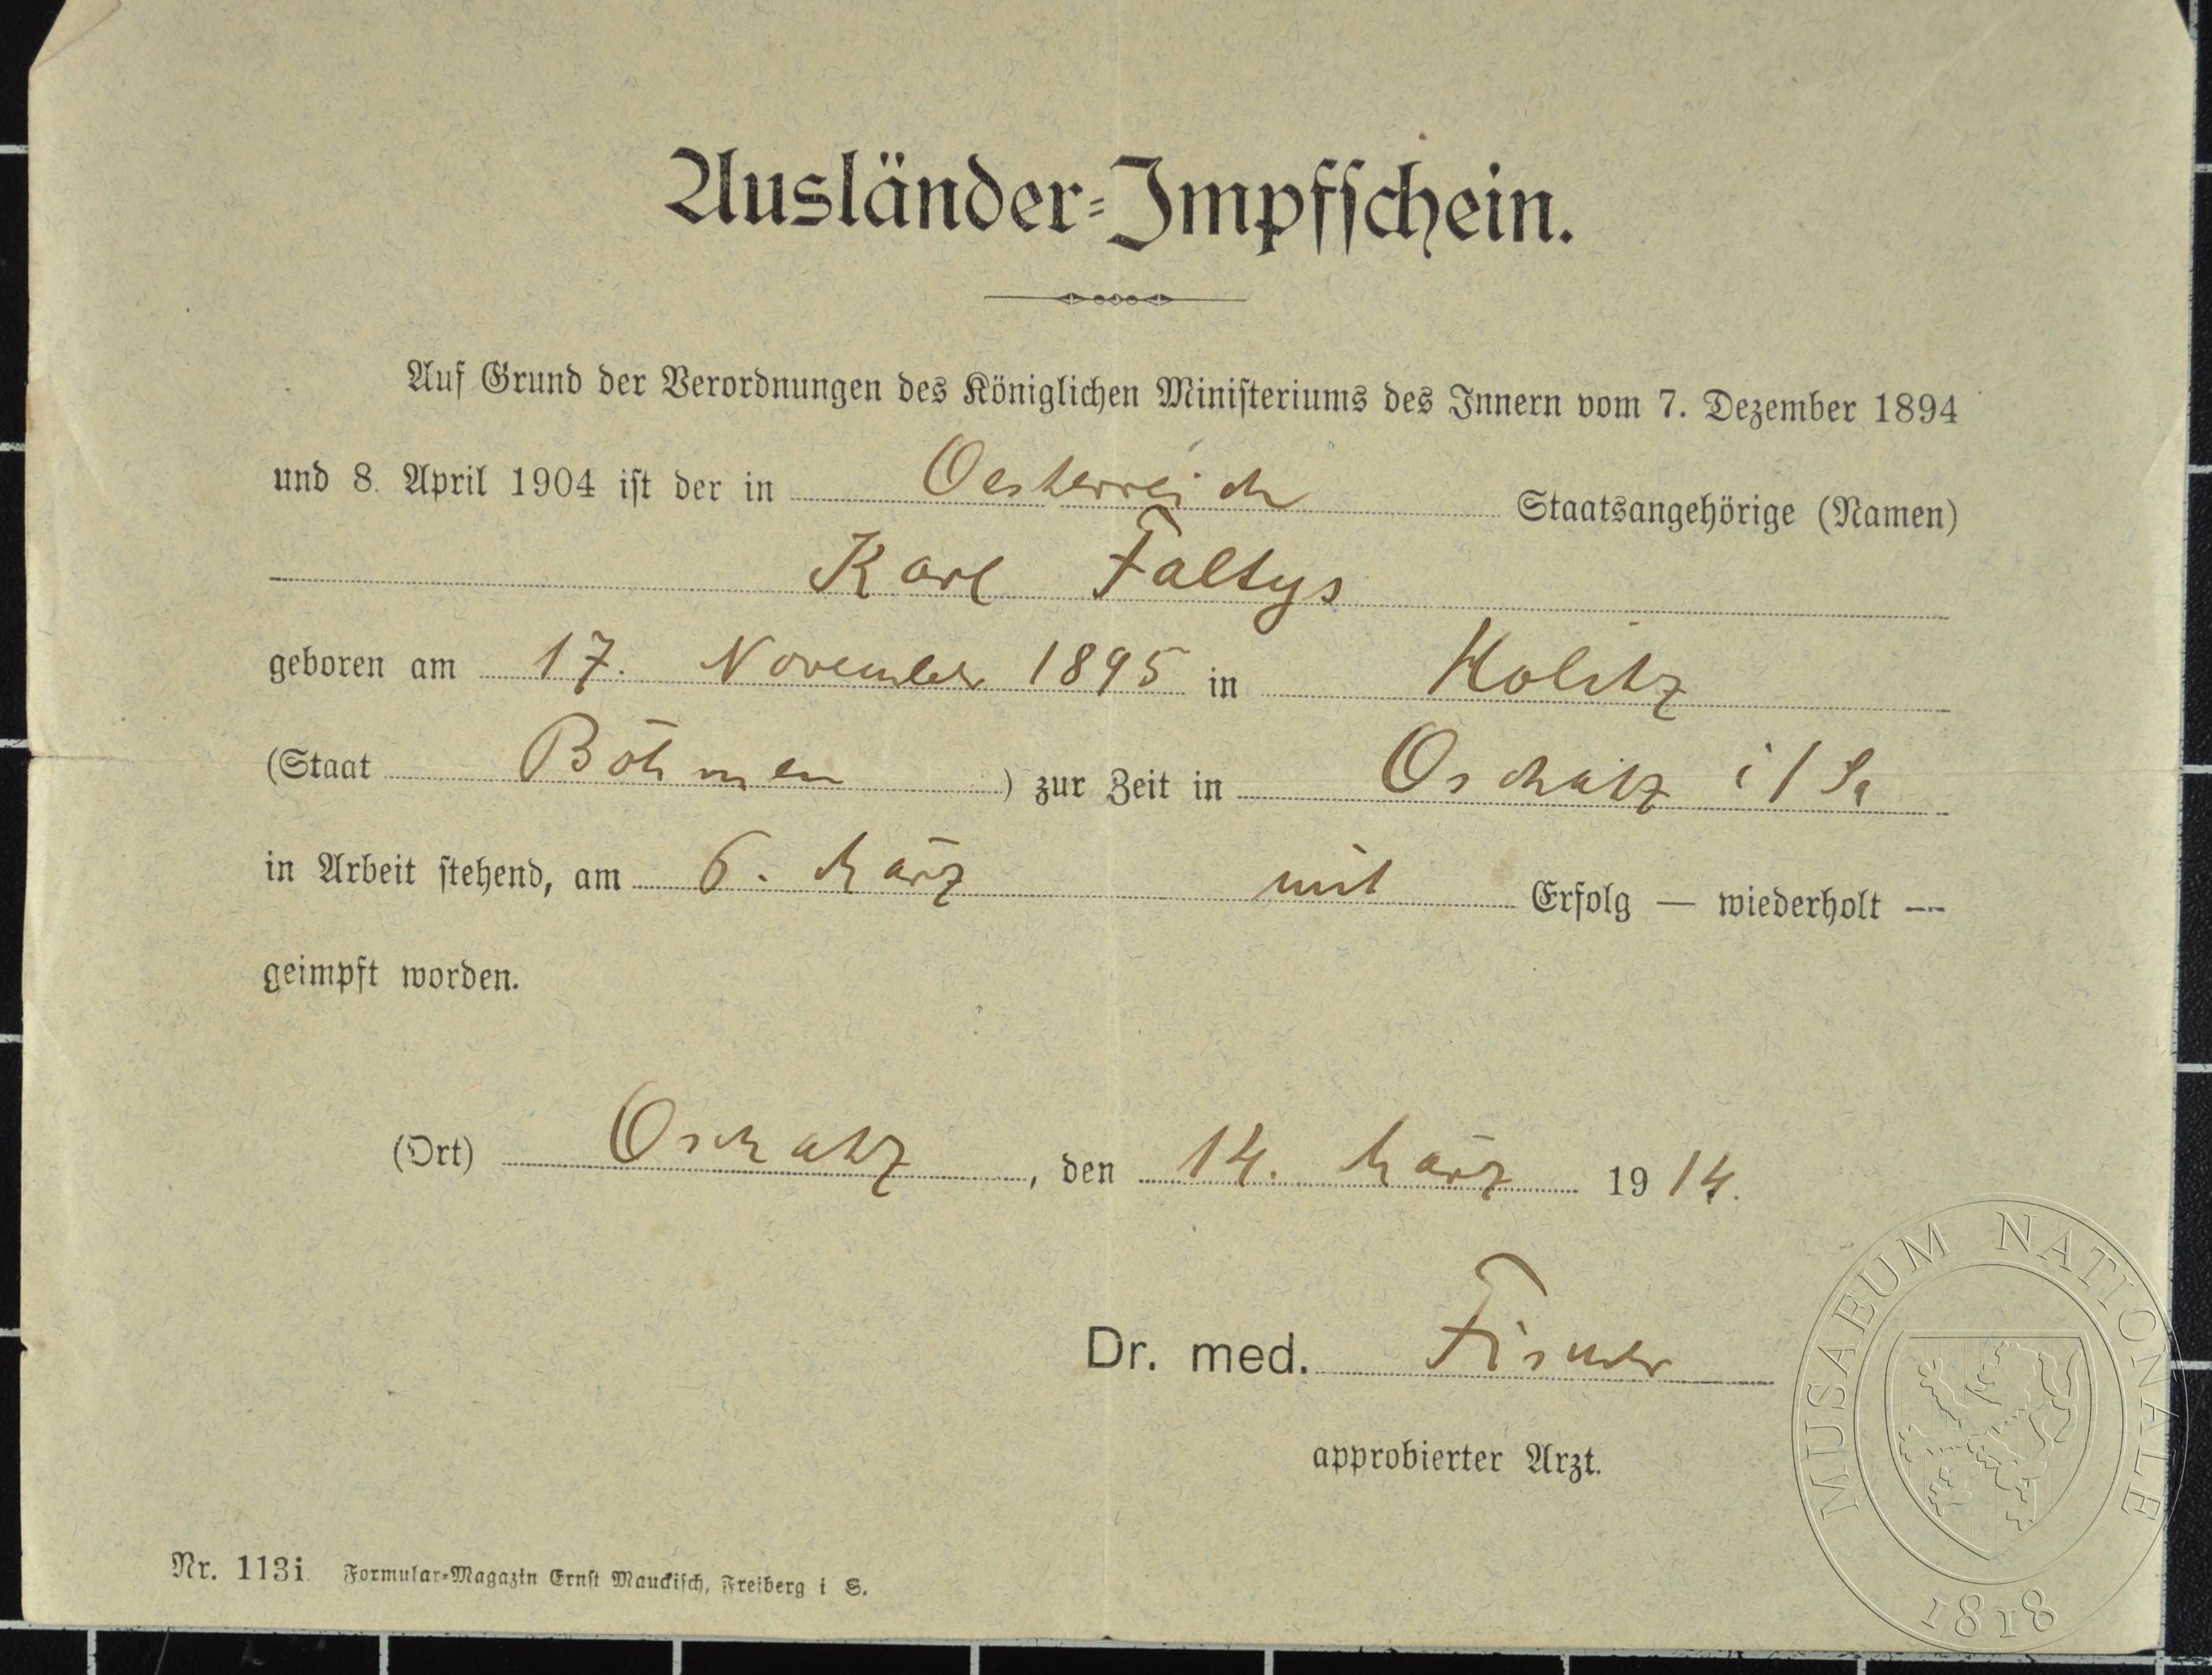 Ausländer-Impfschein.
Auf Grund der Verordnungen des Königlichen Ministeriums des Innern vom 7. Dezember 1894
und 8. April 1904 ist der in Oesterreich Staatsangehörige (Namen)
Karl Faltys
geboren am 17. November 1895 in Holitz
(Staat Böhmen) zur Zeit in Oschatz i/Sa
in Arbeit stehend, am 6. März mit Erfolg — wiederholt —
geimpft worden.
(Ort) Oschatz, den 14. März 1914.
Dr. med. Fischer
approbierter Arzt.
Nr. 113i. Formular-Magazin Ernst Mauckisch, Freiberg i S.
MUSAEUM NATIONALE
1818